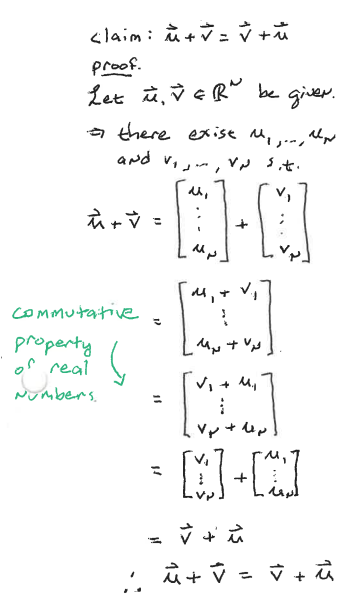 claim: u⃗ + v⃗ = v⃗ + u⃗
proof.
Let u⃗, v⃗ ∈ ℝᴺ be given.
⇒ there exist u₁, ..., u_N
and v₁, ..., v_N s.t.
u⃗ + v⃗ = [u₁ ⋮ u_N] + [v₁ ⋮ v_N]
= [u₁ + v₁ ⋮ u_N + v_N]
commutative
property
of real
numbers.
= [v₁ + u₁ ⋮ v_N + u_N]
= [v₁ ⋮ v_N] + [u₁ ⋮ u_N]
= v⃗ + u⃗
∴ u⃗ + v⃗ = v⃗ + u⃗